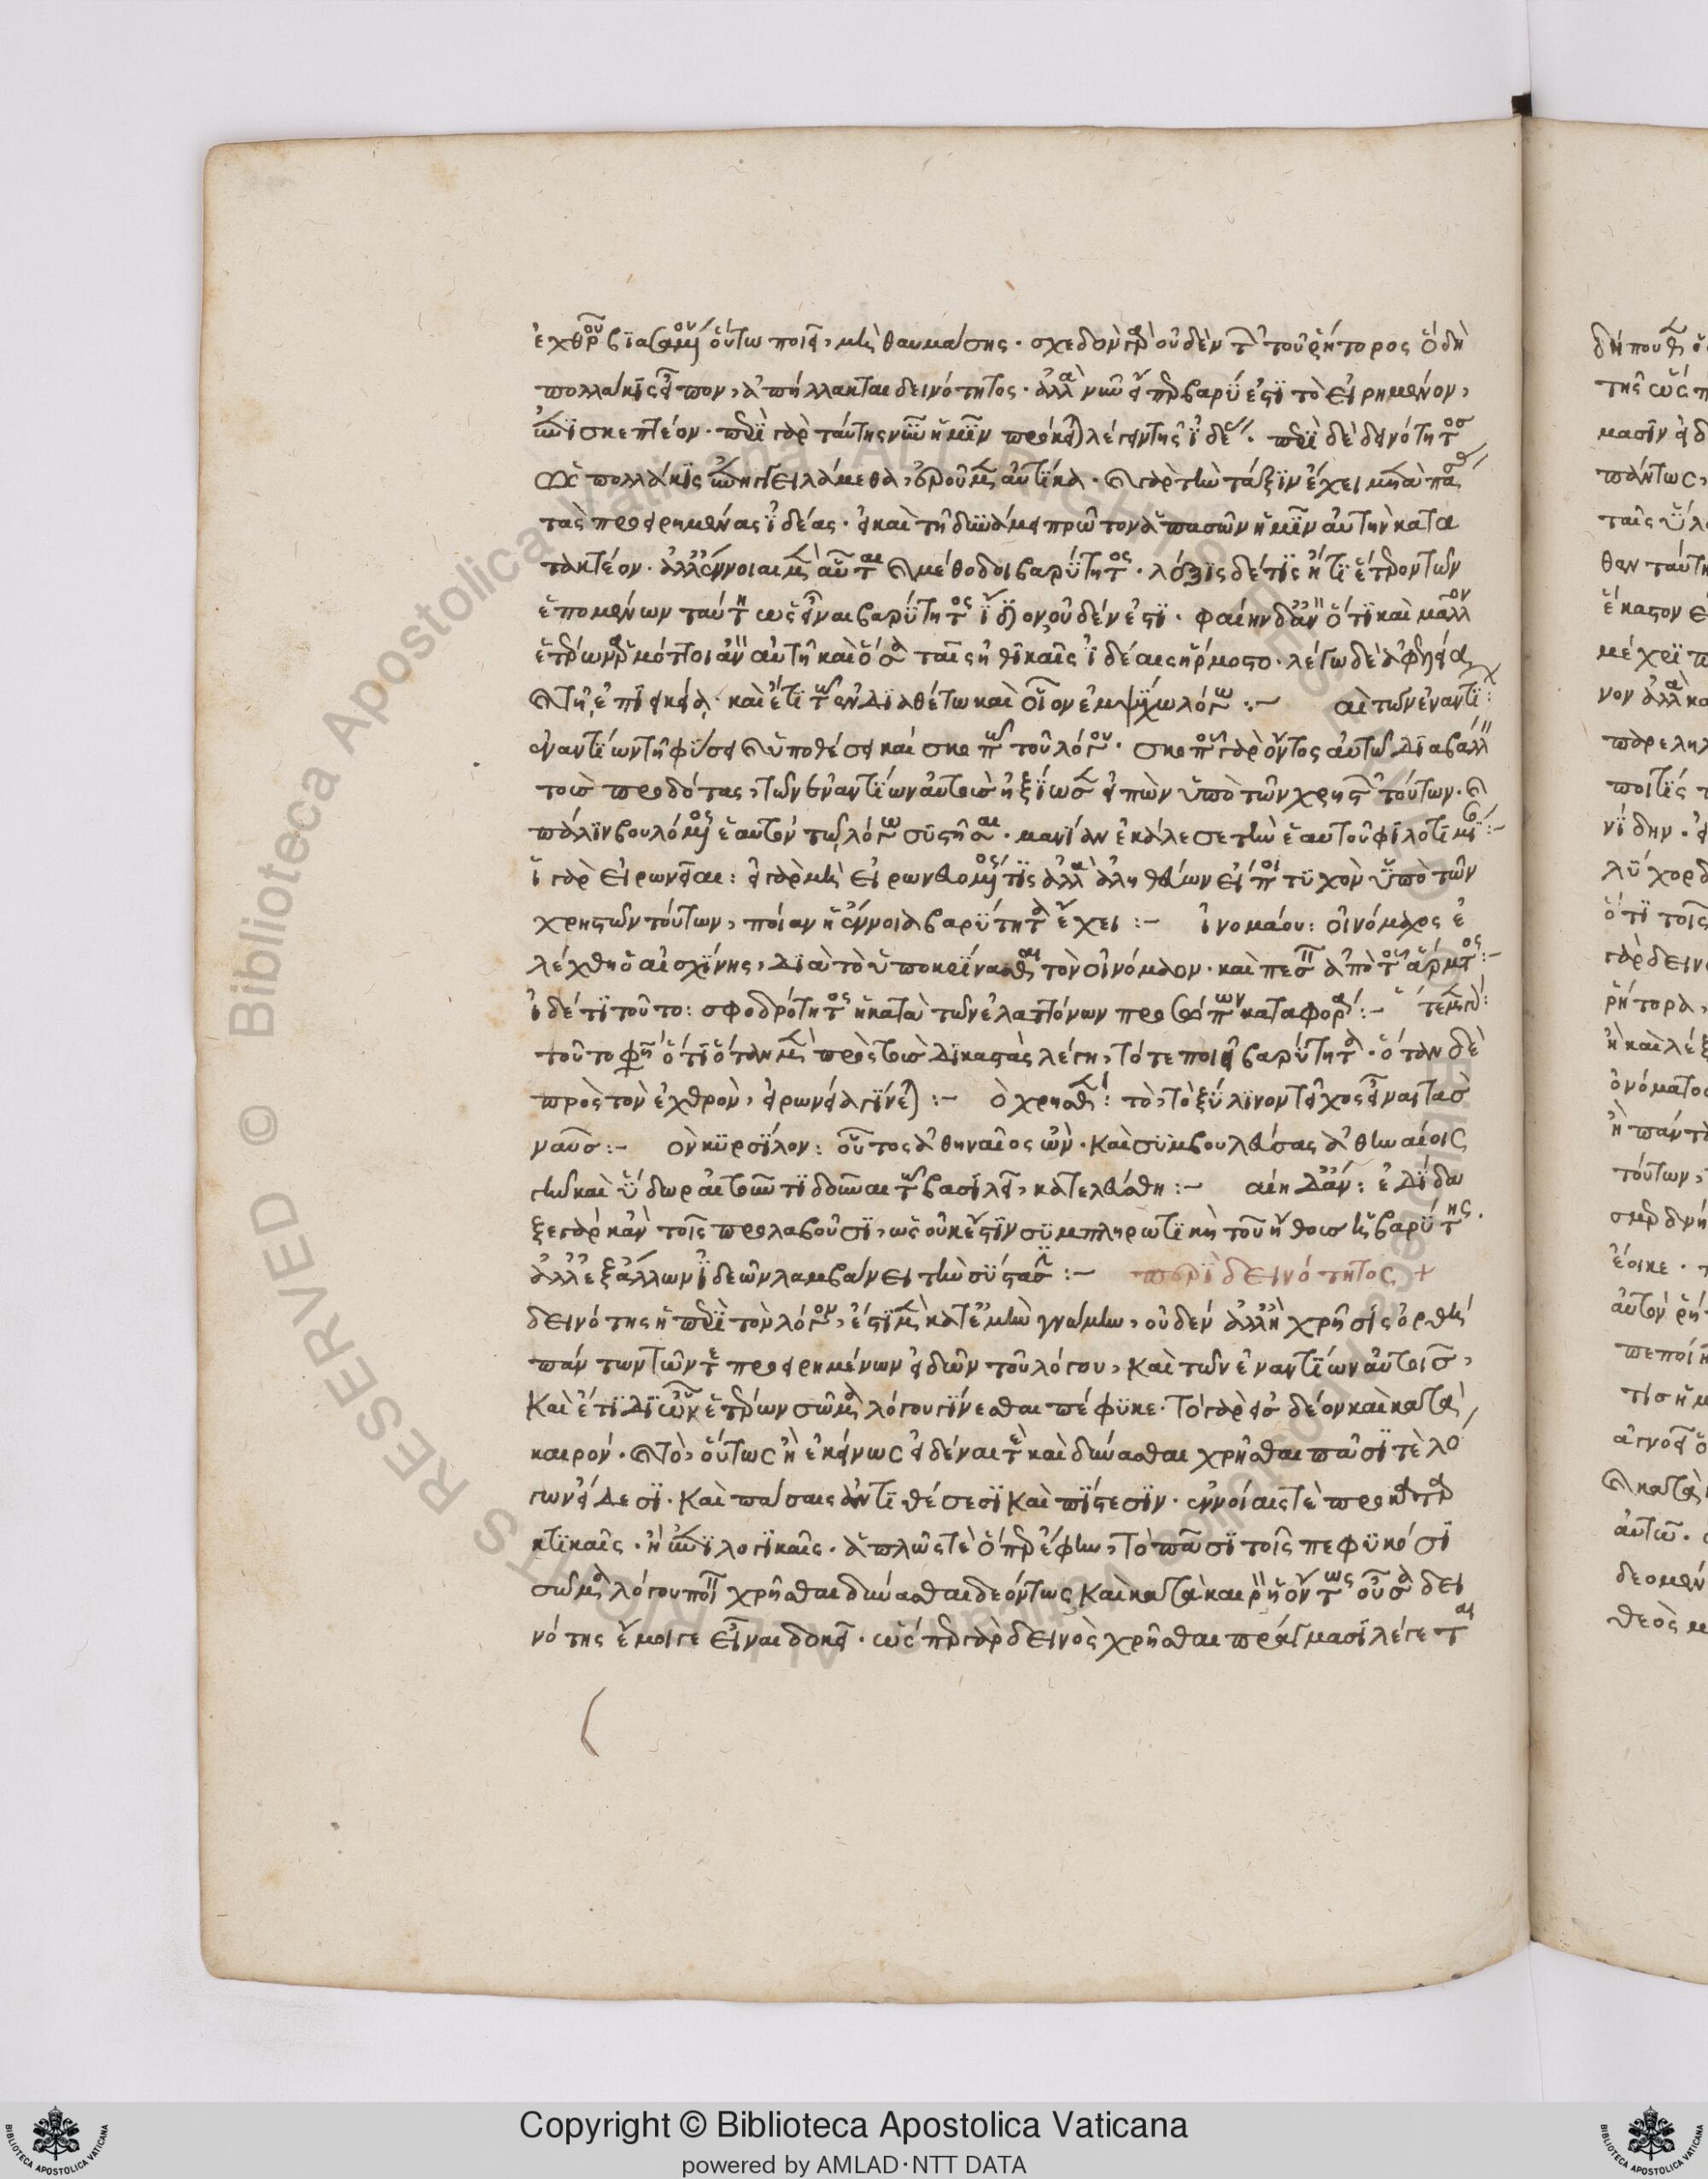 ἐχθροῦ βιαζομένου οὕτω ποιεῖ, μὴ θαυμάσῃς. σχεδὸν γὰρ οὐδὲν τῶν τοῦ ῥήτορος ὃ δὴ
πολλάκις εἶπον, ἀπήλλακται δεινότητος. ἀλλὰ νῦν εἴπερ βαρύ ἐστι τὸ εἰρημένον,
ἐπισκεπτέον. περὶ γὰρ ταύτης νῦν ἡμῖν πρόκειται λέγειν τῆς ἰδέας. περὶ δὲ δεινότητος
ἧς πολλάκις ἐπηγγειλάμεθα, ἐροῦμεν αὐτίκα. καὶ γὰρ τὴν τάξιν ἔχει μετὰ πάσας
τὰς προειρημένας ἰδέας. εἰ καὶ τῇ δυνάμει πρῶτον ἁπασῶν ἡμῖν αὐτὴν κατα
τακτέον. ἀλλ' ἔννοιαι μὲν αὗται καὶ μέθοδοι βαρύτητος. λέξις δέ τις ἤ τι ἕτερον τῶν
ἑπομένων ταύτῃ ὡς εἶναι βαρύτητος ἴδιον, οὐδέν ἐστι. φαίην δ' ἂν ὅτι καὶ μᾶλλον
ἑτέρων ἁρμόττοι ἂν αὐτῇ καὶ ὅσα ταῖς ἠθικαῖς ἰδέαις ἥρμοστο. λέγω δὲ ἀφελείᾳ
καὶ τῇ ἐπιεικείᾳ. καὶ ἔτι τῷ ἐνδιαθέτῳ καὶ οἷον ἐμψύχῳ λόγῳ :~ αἱ τῶν ἐναντί:
ἐναντίων τῇ φύσει καὶ ὑποθέσει καὶ σκοπῷ τοῦ λόγου. σκοποῦ γὰρ ὄντος αὐτῷ διαβάλλειν
τοὺς προδότας, τῶν ἐναντίων αὐτοὺς ἠξίωσεν εἰπὼν ὑπὸ τῶν χρηστῶν τούτων. καὶ
πάλιν βουλόμενος ἑαυτόν τῷ λόγῳ συστῆσαι. μανίαν ἐκάλεσε τὴν ἑαυτοῦ φιλοτιμί:~
ἰ γὰρ εἰρωνεῖαι: εἰ γὰρ μὴ εἰρωνευόμενός τις ἀλλὰ ἀληθεύων εἴποι τυχὸν ὑπὸ τῶν
χρηστῶν τούτων, ποίαν ἡ ἔννοια βαρύτητα ἔχει :~ ἰνομάου: οἰνόμαος ἐ
λέχθη ὁ αἰσχίνης, διὰ τὸ ὑποκρίνασθαι τὸν οἰνόμαον. καὶ πεσεῖν ἀπὸ τοῦ ἅρματος:~
ἰδέ τι τοῦτο: σφοδρότητος ἡ κατὰ τῶν ἐλαττόνων προσώπων καταφορά:~
τοῦτο φησὶν ὅτι ὅταν μὲν πρὸς τοὺς δικαστὰς λέγῃ, τότε ποιεῖ βαρύτητα. ὅταν δὲ
πρὸς τὸν ἐχθρὸν, εἰρωνεία γίνεται :~ ὁ χρησμ: τὸ, τὸ ξύλινον τεῖχος εἶναι τὰς
ναῦς:~ ὃν κυρσίλον: οὗτος ἀθηναῖος ὢν. καὶ συμβουλεύσας ἀθηναίοις
γῆν καὶ ὕδωρ αἰτοῦντι δοῦναι τῷ βασιλεῖ, κατελεύσθη :~ αίη δ' ἄν: ἐδίδα
ξε γὰρ κἀν τοῖς προλαβοῦσι, ὡς οὐκ ἔστιν συμπληρωτικὴ τοῦ ἤθους ἡ βαρύτης.
ἀλλ' ἐξ ἄλλων ἰδεῶν λαμβάνει τὴν σύστασιν :~ περὶ δεινότητος +
δεινότης ἡ περὶ τὸν λόγον, ἐστὶ μὲν κατ' ἐμὴν γνώμην, οὐδέν ἄλλο ἢ χρῆσις ὀρθὴ
πάντων τῶν τε προειρημένων εἰδῶν τοῦ λόγου, καὶ τῶν ἐναντίων αὐτοῖς,
καὶ ἔτι δι' ὧν ἑτέρων σῶμα λόγου γίνεσθαι πέφυκε. τὸ γὰρ εἰς δέον καὶ κατὰ
καιρόν. καὶ τὸ, οὕτως ἢ ἐκείνως εἰδέναι τε καὶ δύνασθαι χρῆσθαι πᾶσί τε λό
γων εἴδεσι. καὶ πάσαις ἀντιθέσεσι καὶ πίστεσιν. ἐννοίαις τὲ προκαταρ
κτικαῖς. ἢ ἐπιλογικαῖς. ἁπλῶς τὲ ὅπερ ἔφην, τὸ πᾶσι τοῖς πεφυκόσι
σῶμα λόγου ποιεῖν χρῆσθαι δύνασθαι δεόντως καὶ κατὰ καιρὸν ἡ ὄντως οὖσα δει
νότης ἔμοιγε εἶναι δοκεῖ. ὥσπερ γὰρ δεινὸς χρῆσθαι πράγμασι λέγεται
Copyright © Biblioteca Apostolica Vaticana
powered by AMLAD·NTT DATA